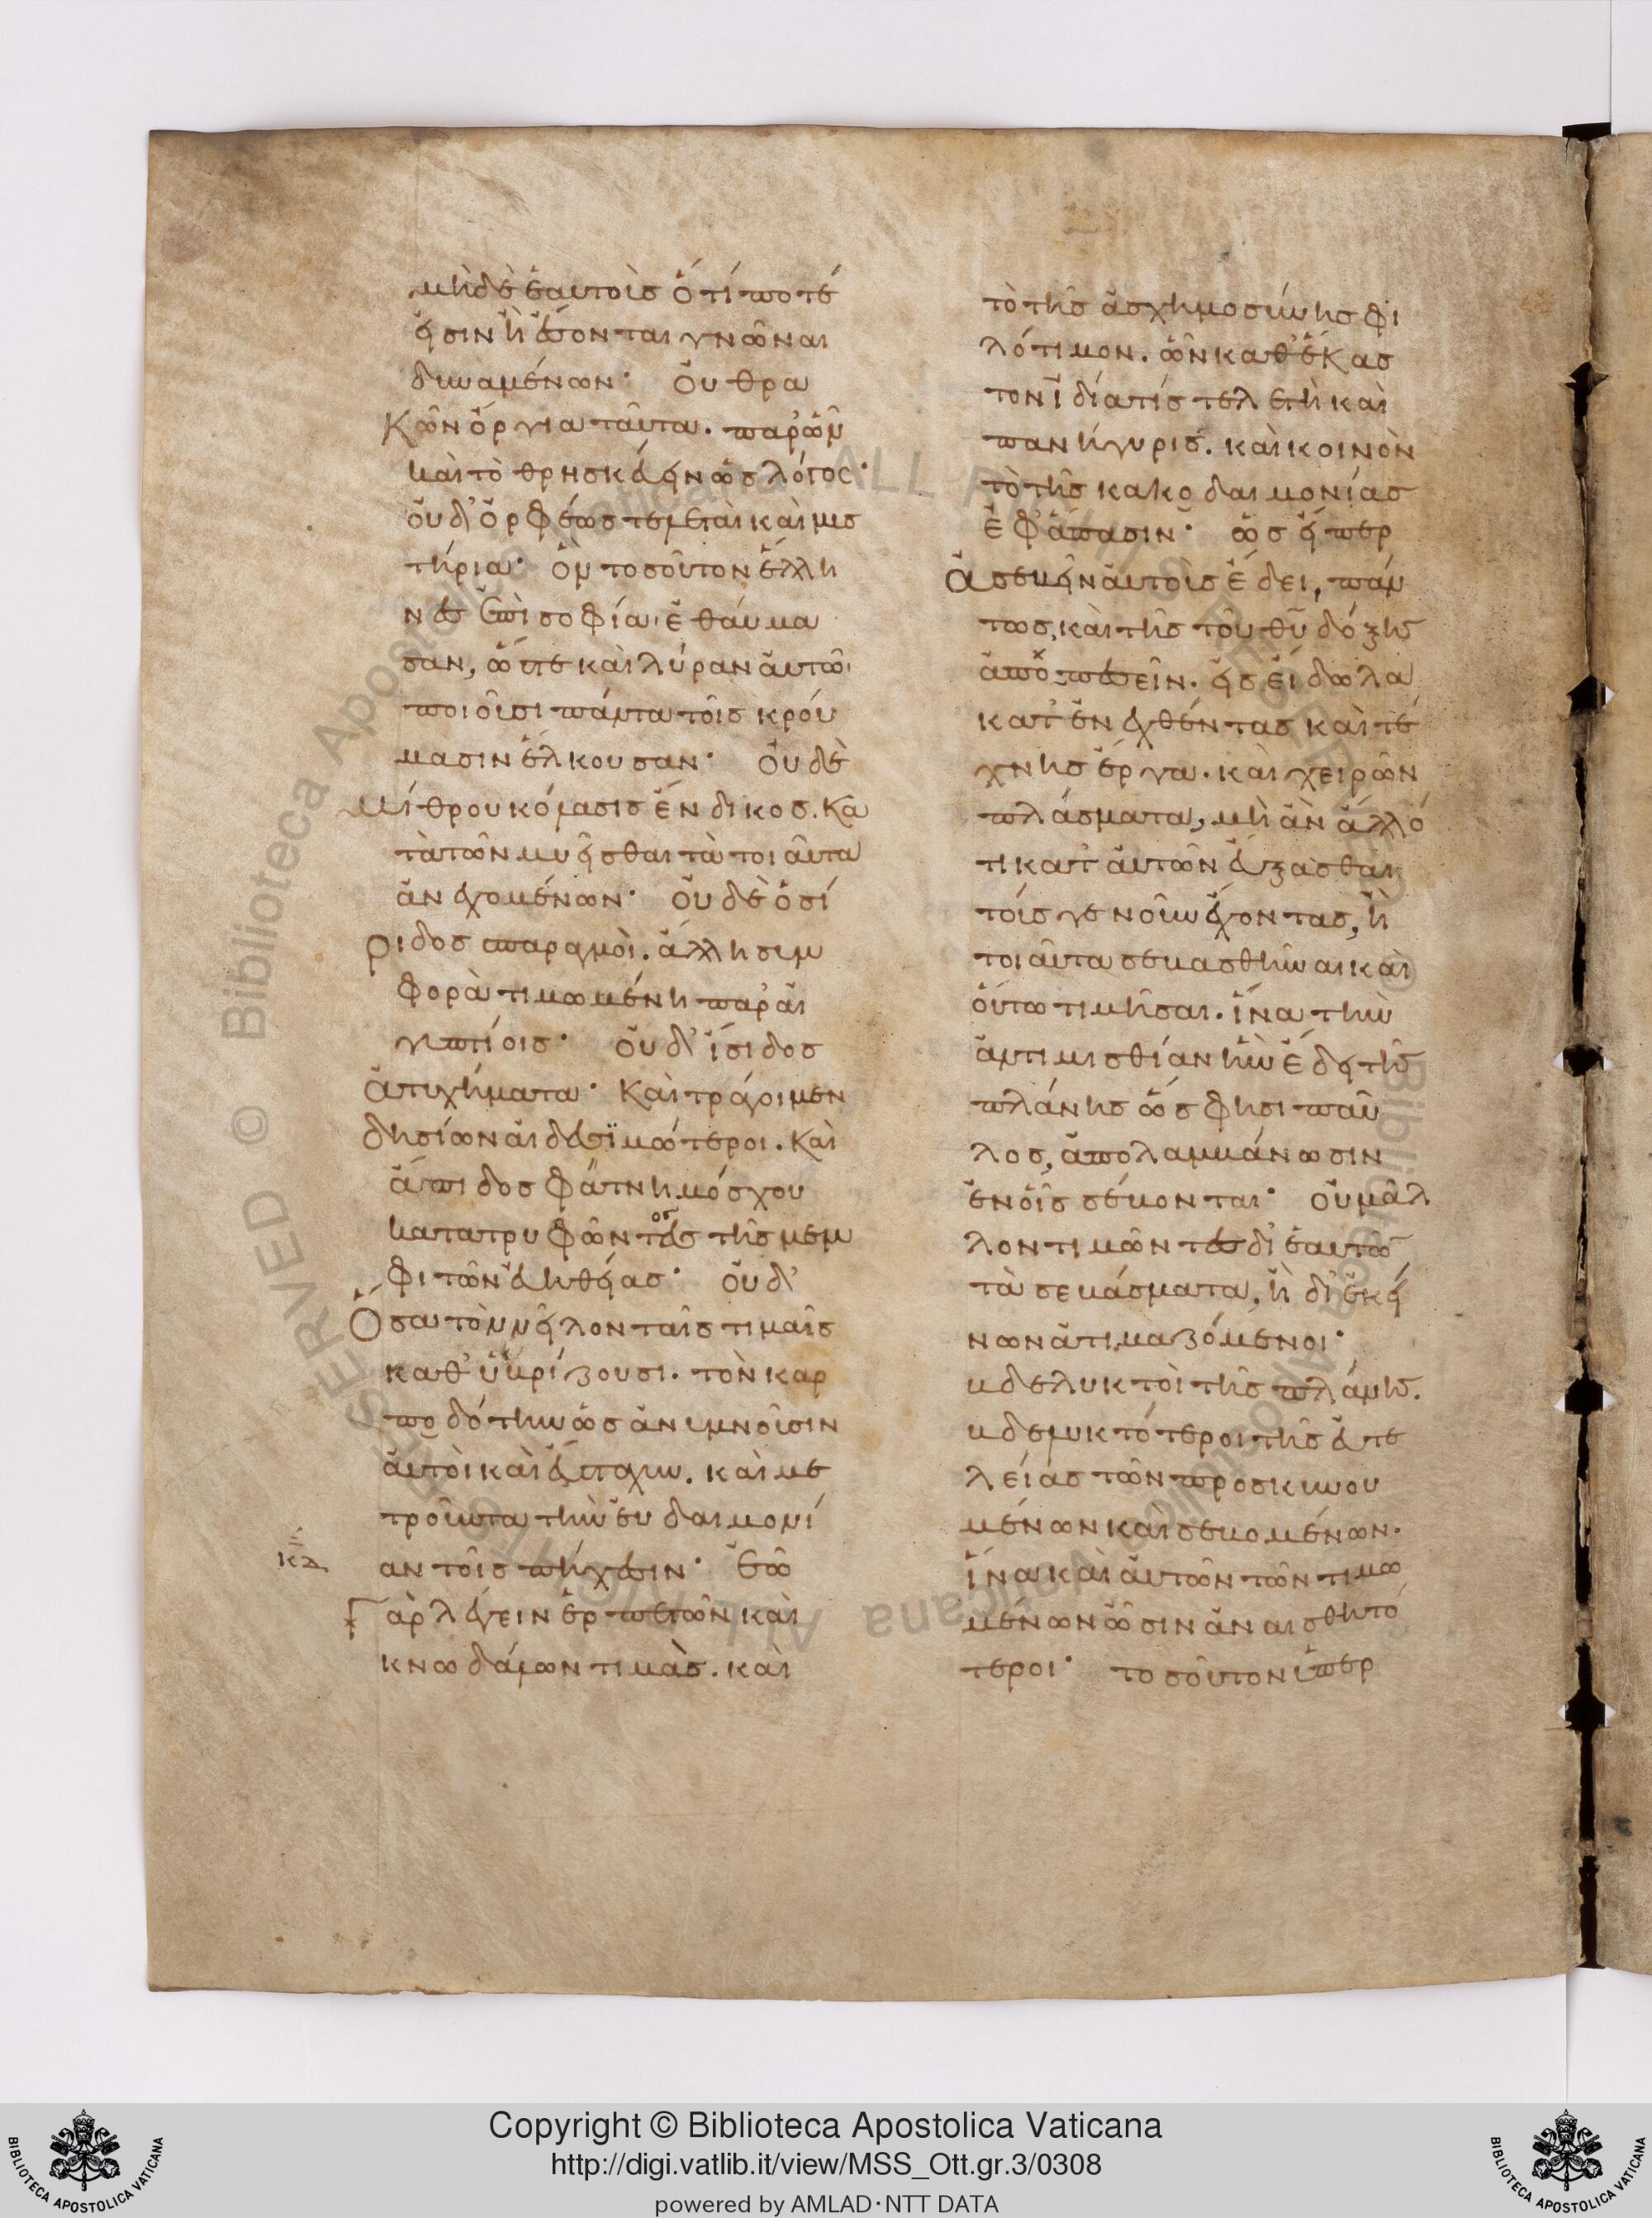 μὴδὲ ἑαυτοῖς ὅτί ποτέ
εἰσιν ἢ ἔσονται γνῶναι
δυναμένων· Οὐ θρα
κῶν ὄργια ταῦτα. παρ' ὧν
καὶ τὸ θρησκεύειν ὡς λόγος·
οὐδ' ὀρφέως τελεταὶ καὶ μυσ
τήρια· ὃν τοσοῦτον ἕλλη
νες ἐπὶ σοφίαι ἐθαύμα
σαν, ὥστε καὶ λύραν αὐτῶι
ποιοῦσι πάντα τοῖς κρού
μασιν ἕλκουσαν· Οὐδὲ
μίθρου κόλασις ἔνδικος. κα
τὰ τῶν μυεῖσθαι τὰ τοιαῦτα
ἀνεχομένων· Οὐδὲ ὀσί
ριδος σπαραγμοὶ. ἄλλη συμ
φορὰ τιμωμένη παρ' αἰ
γυπτίοις· οὐδ' ἴσιδος
ἀτυχήματα· καὶ τράγοι μεν
δησίων αἰδεσϊμώτεροι. καὶ
ἄπιδος φάτνη μόσχου
κατατρυφῶντος τῆς μεμ
φιτῶν εὐηθείας· οὐδ'
Ὅσα τὸν νεῖλον ταῖς τιμαῖς
καθ' ὑβρίζουσι. τὸν καρ
ποδότην ὡς ἀνυμνοῦσιν
αὐτοὶ καὶ εὔσταχυν. καὶ με
τροῦντα τὴν εὐδαιμονί
αν τοῖς πήχεσιν· Ἐῶ
κζ
γὰρ λέγειν ἑρπετῶν καὶ
κνωδάλων τιμὰς. καὶ
τὸ τῆς ἀσχημοσύνης φι
λότιμον. ὧν καθ' ἕκασ
τον ἰδία τίς τελετὴ καὶ
πανήγυρις. καὶ κοινὸν
τὸ τῆς κακοδαιμονίας
ἐφ' ἅπασιν· ὡς εἴπερ
Ἀσεβεῖν αὐτοῖς ἔδει, πάν
τως, καὶ τῆς τοῦ θῦ δόξης
ἀποπεσεῖν. εἰς εἴδωλα
κατ' ενεχθέντας καὶ τέ
χνης ἔργα. καὶ χειρῶν
πλάσματα, μὴ ἂν ἄλλό
τι κατ' αὐτῶν εὔξασθαι
τούς γε νοῦν ἔχοντας, ἢ
τοιαῦτα σεβασθῆναι καὶ
οὕτω τιμῆσαι. ἵνα τὴν
ἀντιμισθίαν ἣν ἔδει τῆς
πλάνης ὥς φησι παῦ
λος, ἀπολαμβάνωσιν
ἐν οἷς σέβονται· Οὐ μᾶλ
λον τιμῶντες δι' ἑαυτῶν
τὰ σεβάσματα, ἢ δι' ἐκεί
νων ἀτιμαζόμενοι·
βδελυκτοὶ τῆς πλάνης.
βδελυκτότεροι τῆς εὐτε
λείας τῶν προσκυνου
μένων καὶ σεβομένων.
ἵνα καὶ αὐτῶν τῶν τιμω
μένων ὦσιν ἀναισθητό
τεροι· τοσοῦτον ὑπερ
Copyright © Biblioteca Apostolica Vaticana
http://digi.vatlib.it/view/MSS_Ott.gr.3/0308
powered by AMLAD·NTT DATA